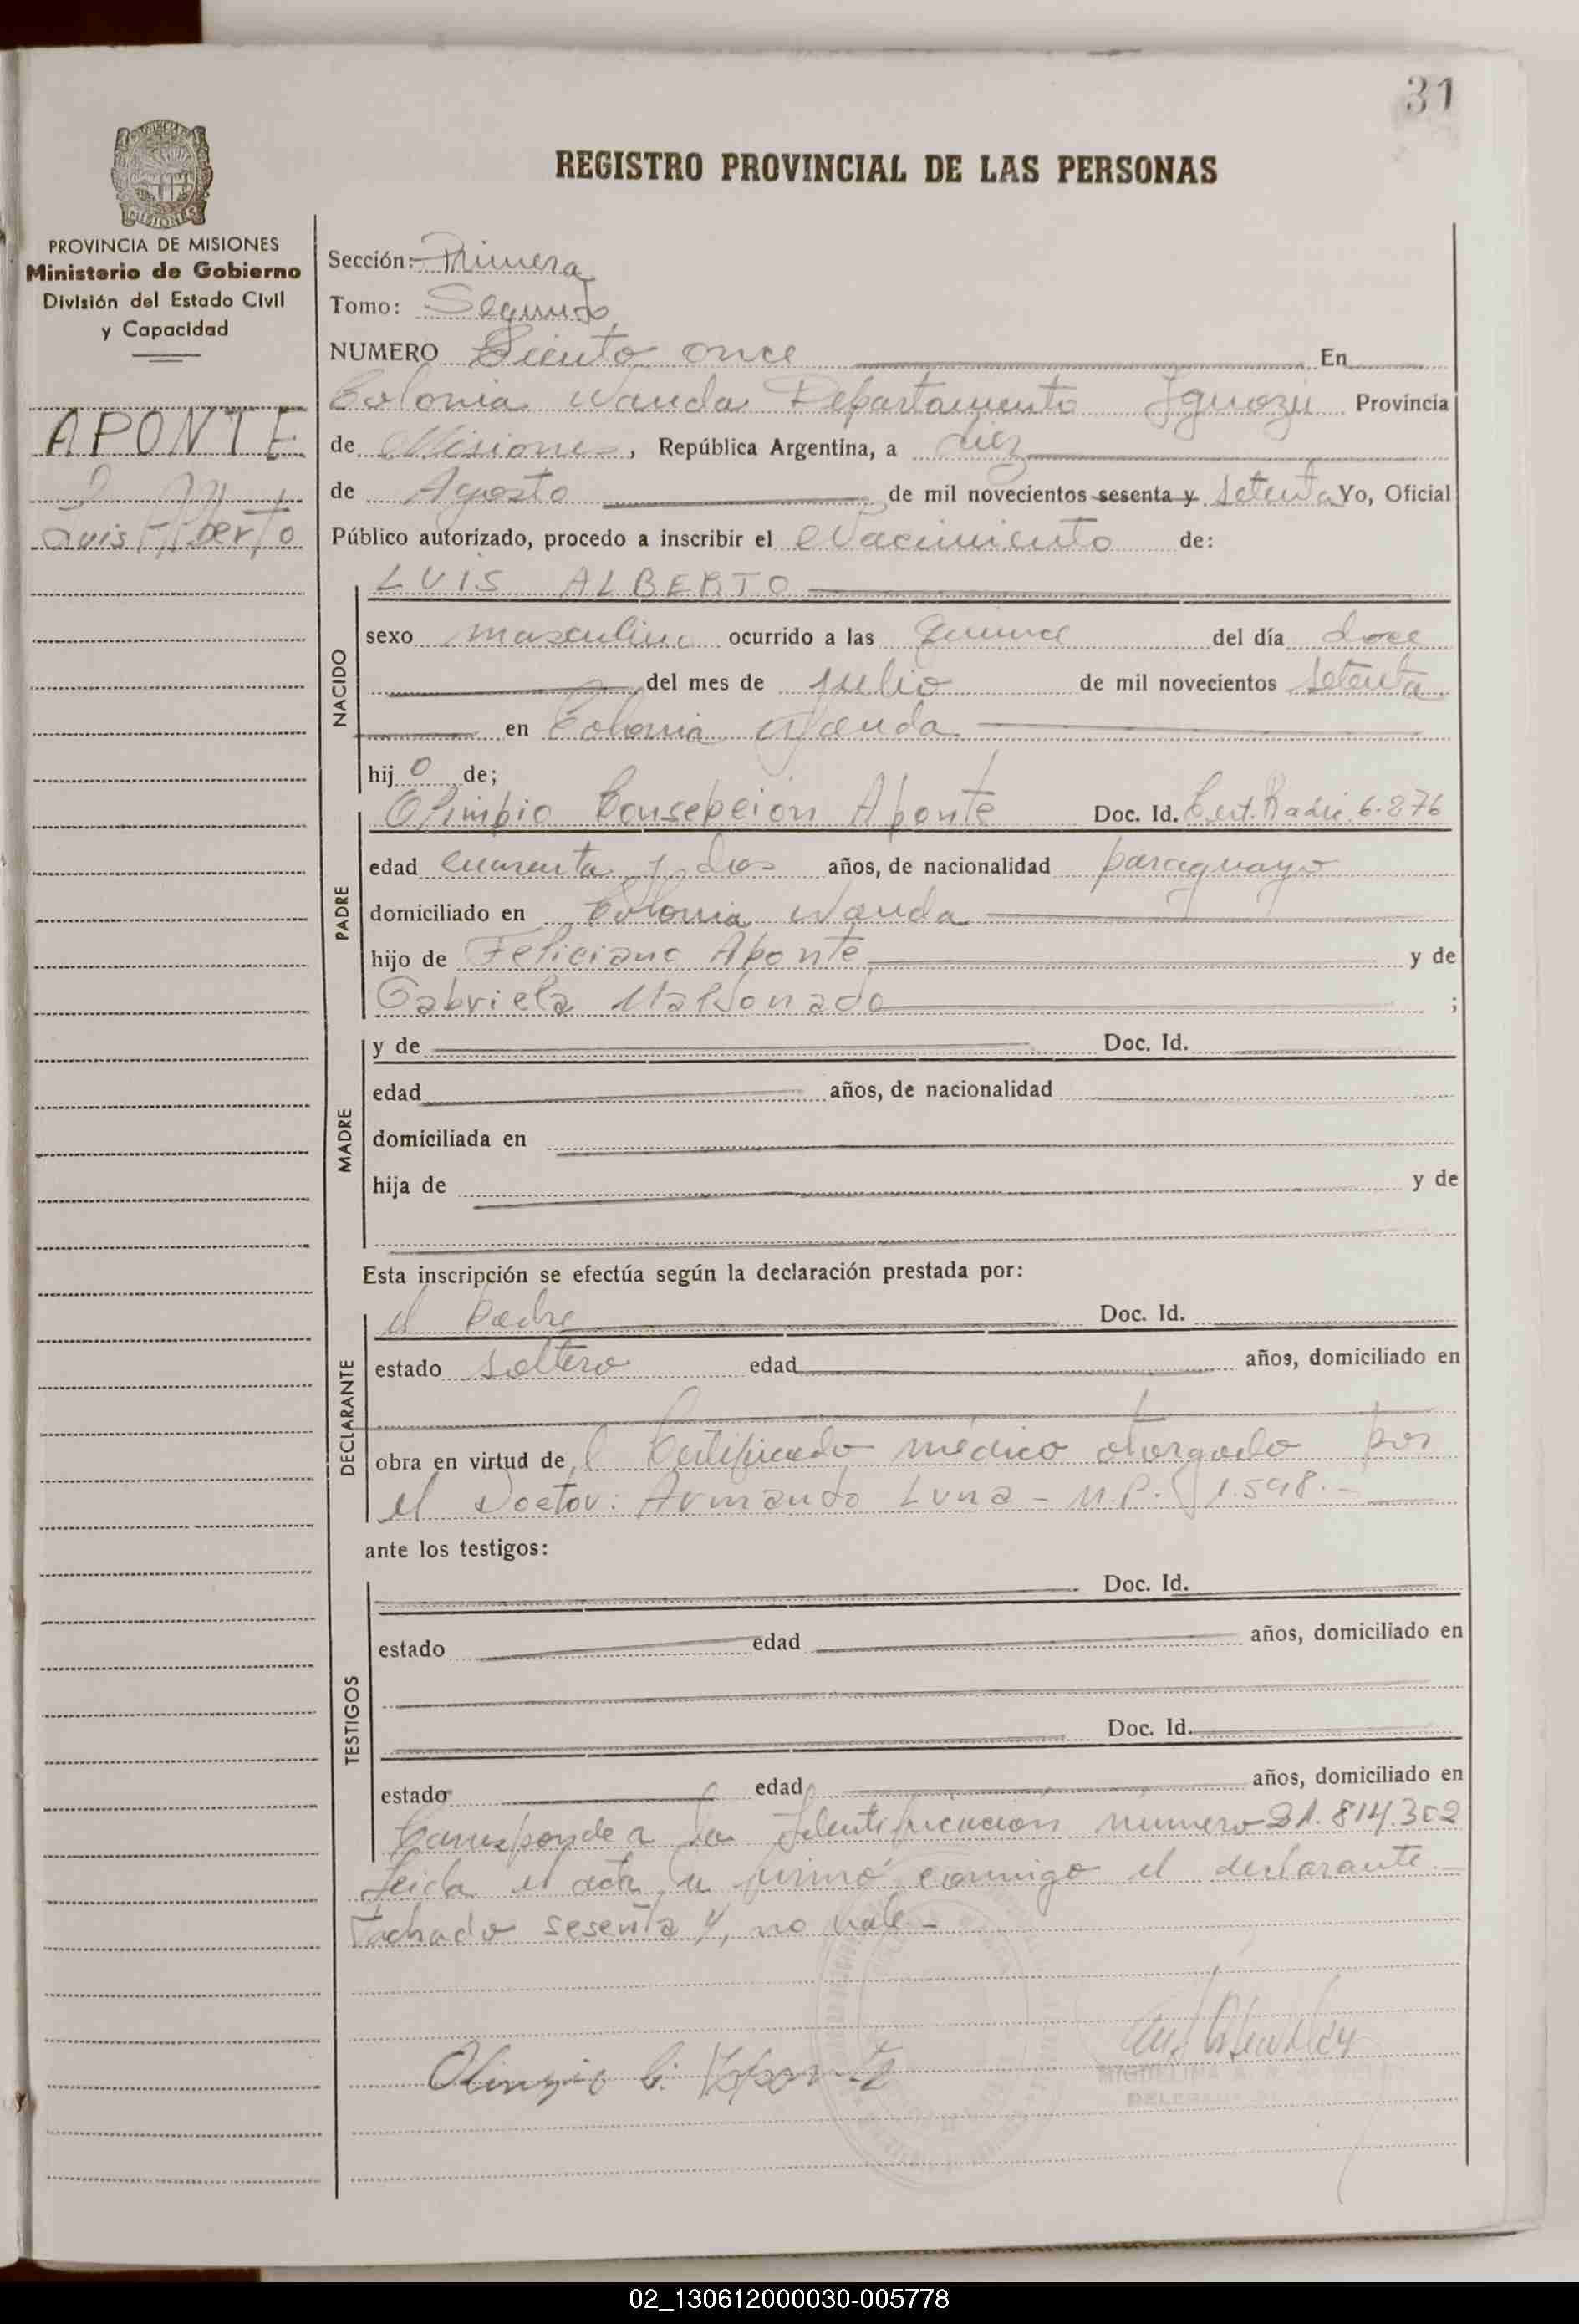 31
REGISTRO PROVINCIAL DE LAS PERSONAS
MISIONES
PROVINCIA DE MISIONES
Ministerio de Gobierno
División del Estado Civil
y Capacidad
APONTE
Luis Alberto
Sección: Primera
Tomo: Segundo
NUMERO Ciento once En
Colonia Wanda Departamento Iguazú Provincia
de Misiones, República Argentina, a diez
de Agosto de mil novecientos sesenta y setenta Yo, Oficial
Público autorizado, procedo a inscribir el Nacimiento de:
NACIDO
LUIS ALBERTO
sexo masculino ocurrido a las quince del día doce
del mes de julio de mil novecientos setenta
en Colonia Wanda
hijo de;
PADRE
Olimpio Consepción Aponte Doc. Id. Cert. Radic. 6.276
edad cuarenta y dos años, de nacionalidad paraguayo
domiciliado en Colonia Wanda
hijo de Feliciano Aponte y de
Gabriela Maldonado ;
MADRE
y de Doc. Id.
edad años, de nacionalidad
domiciliada en
hija de y de
Esta inscripción se efectúa según la declaración prestada por:
DECLARANTE
el Padre Doc. Id.
estado soltero edad años, domiciliado en
obra en virtud del Certificado médico otorgado por
el Doctor: Armando Luna - M.P. 1.598.-
ante los testigos:
TESTIGOS
Doc. Id.
estado edad años, domiciliado en
Doc. Id.
estado edad años, domiciliado en
Corresponde a la Identificación número 21.814.352
Leida el acta, la firmó conmigo el declarante.
Tachado sesenta y, no vale.-
Olimpio C. Aponte
MIGUELINA
02_130612000030-005778